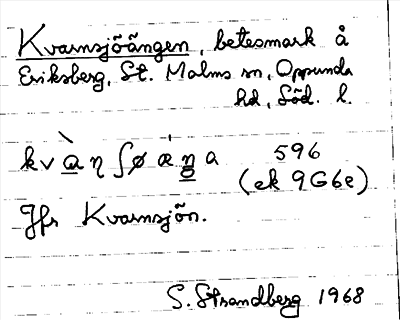 Kvarnsjöängen, betesmark å
Eriksberg, St. Malms sn, Oppunda
hd, Söd. l.
kvàη ʃø æŋa 596
(ek 9G6e)
Jfr Kvarnsjön.
S. Strandberg 1968